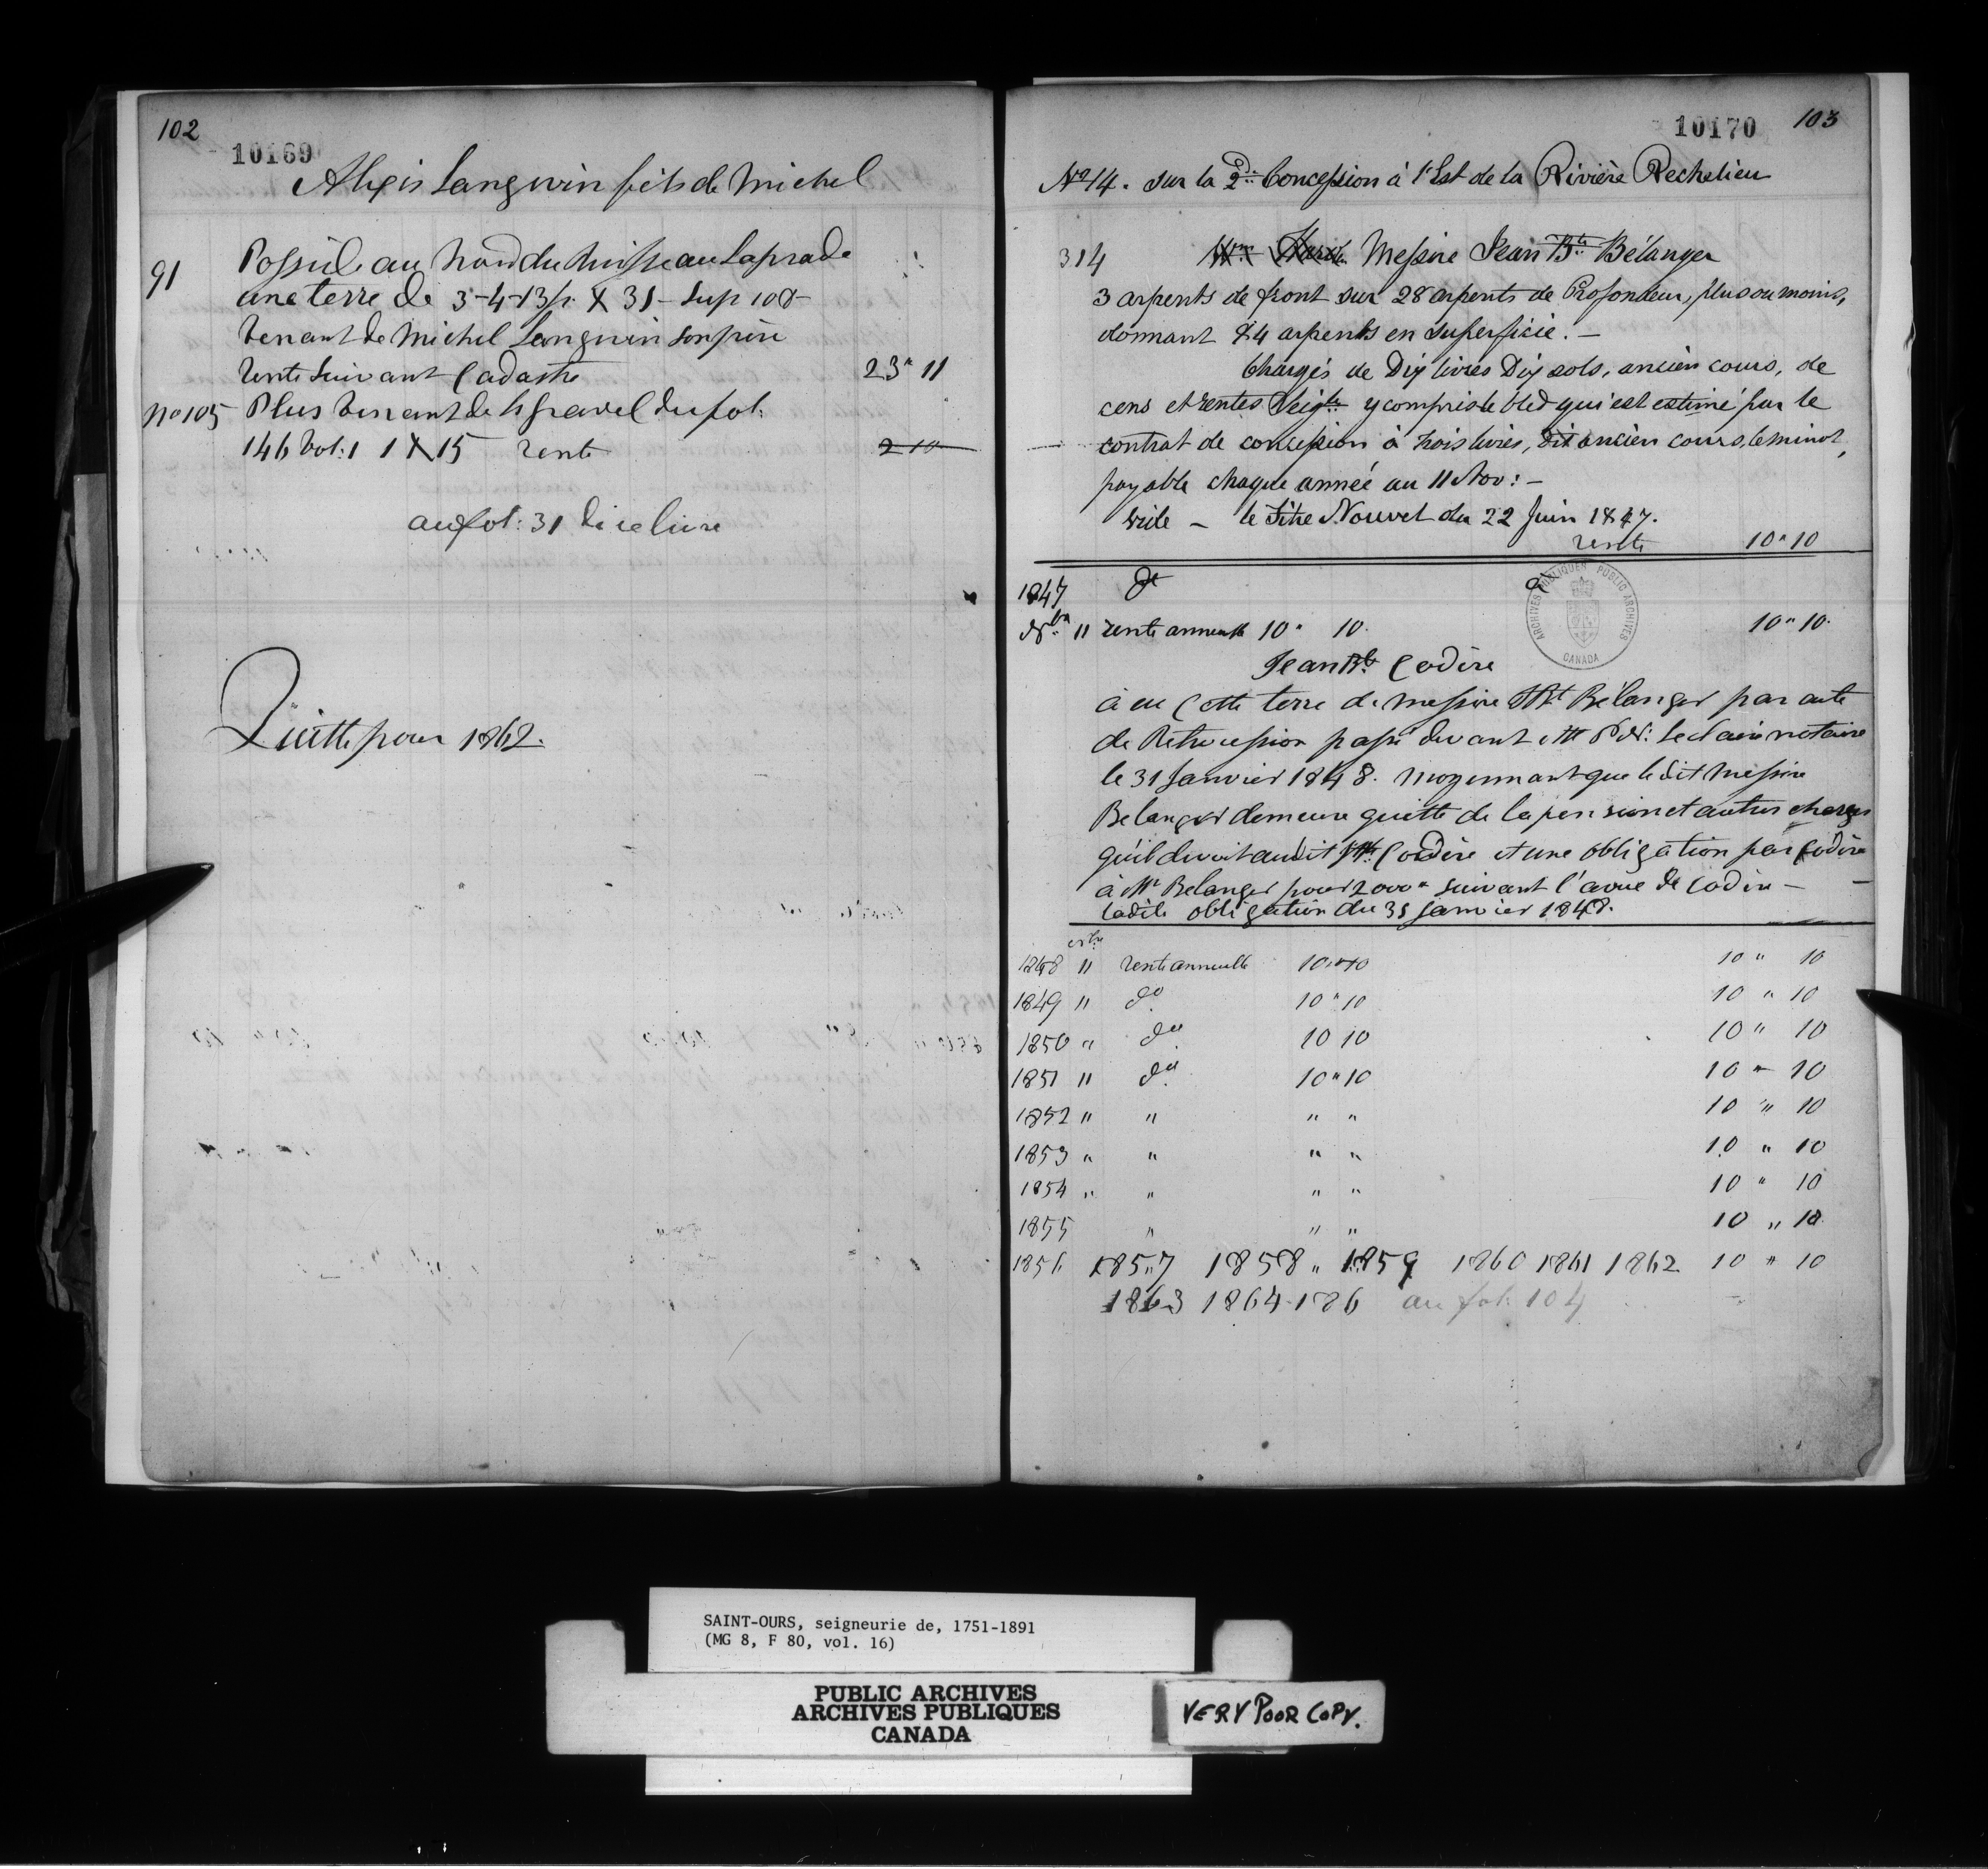 102
10169
Alexis Langevin fils de Michel
91 Possède au Nord du Ruisseau Laprade
une terre de 3-4-13p. X 31 - Sup 108-
venant de Michel Langevin son père
rente suivant Cadastre 23 " 11
No 105 Plus venant de Gravel du fol:
146 Vol: 1 1 X 15 rente 2 10
au fol: 31 de ce livre
Quitte pour 1862.
10170 103
No 14. sur la 2de Concession à l'Est de la Rivière Rechelieu
314 Messire Jean Bte Bélanger
3 arpents de front sur 28 arpents de Profondeur, plus ou moins,
donnant 84 arpents en superficie. —
Chargés de Dix livres Dix sols, ancien cours, de
cens et rentes Seigles y compris le bled qui est estimé par le
contrat de concession à trois livres, dit ancien cours, le minot,
payable chaque année au 11 Nov: —
vide — le Titre Nouvel du 22 Juin 1847.
rente 10 " 10
1847 dt a
Nbre 11 rente annuelle 10 " 10. 10 " 10.
Jean Bte Codère
à eu Cette terre de messire JBt Bélanger par acte
de Retrocession passé devant Mtre P.N: Leclaire notaire
le 31 Janvier 1848. moyennant que le dit Messire
Belanger demeure quitte de la pension et autres charges
qu'il devoit au dit JBte Codère et une obligation par Codère
à Mr Belanger pour 2000 " suivant l'aveu de Codère —
ladite obligation du 31 Janvier 1848.
9bre
1848 11 rente annuelle 10 " 10 10 " 10
1849 11 do 10 " 10 10 " 10
1850 " do 10 10 10 " 10
1851 11 do 10 " 10 10 " 10
1852 " " " " 10 " 10
1853 " " " " 10 " 10
1854 " " " " 10 " 10
1855 " " " 10 " 10
1856 1857 1858 " 1859 1860 1861 1862 10 " 10
1863 1864 186 au fol: 104
ARCHIVES PUBLIQUES PUBLIC ARCHIVES
CANADA
SAINT-OURS, seigneurie de, 1751-1891
(MG 8, F 80, vol. 16)
PUBLIC ARCHIVES
ARCHIVES PUBLIQUES
CANADA
VERY POOR COPY.